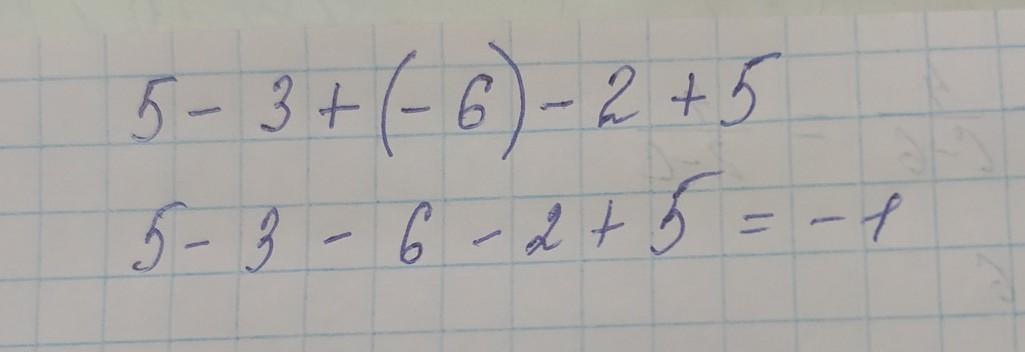 5 - 3 + (- 6) - 2 + 5
5 - 3 - 6 - 2 + 5 = - 1